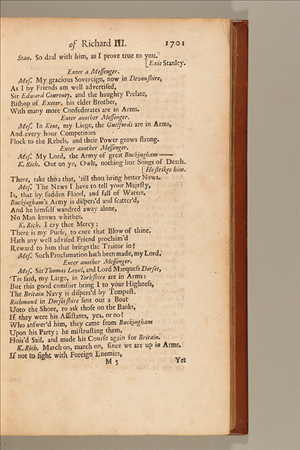 of Richard III. 1701
Stan. So deal with him, as I prove true to you.
[Exit Stanley.
Enter a Meſſenger.
Meſ. My gracious Sovereign, now in Devonſhire,
As I by Friends am well advertiſed,
Sir Edward Courtney, and the haughty Prelate,
Biſhop of Exeter, his elder Brother,
With many more Confederates are in Arms.
Enter another Meſſenger.
Meſ. In Kent, my Liege, the Guilfords are in Arms,
And every hour Competitors
Flock to the Rebels, and their Power grows ſtrong.
Enter another Meſſenger.
Meſ. My Lord, the Army of great Buckingham——
K. Rich. Out on ye, Owls, nothing but Songs of Death.
[He ſtrikes him.
There, take thou that, 'till thou bring better News.
Meſ. The News I have to tell your Majeſty,
Is, that by ſudden Flood, and fall of Waters,
Buckingham's Army is diſpers'd and ſcatter'd,
And he himſelf wandred away alone,
No Man knows whither.
K. Rich. I cry thee Mercy;
There is my Purſe, to cure that Blow of thine.
Hath any well adviſed Friend proclaim'd
Reward to him that brings the Traitor in?
Meſ. Such Proclamation hath been made, my Lord.
Enter another Meſſenger.
Meſ. Sir Thomas Lovel, and Lord Marqueſs Dorſet,
'Tis ſaid, my Liege, in Yorkſhire are in Arms:
But this good comfort bring I to your Highneſs,
The Britain Navy is diſpers'd by Tempeſt.
Richmond in Dorſetſhire ſent out a Boat
Unto the Shore, to ask thoſe on the Banks,
If they were his Aſſiſtants, yea, or no?
Who anſwer'd him, they came from Buckingham
Upon his Party; he miſtruſting them,
Hois'd Sail, and made his Courſe again for Britain.
K. Rich. March on, march on, ſince we are up in Arms,
If not to fight with Foreign Enemies,
M 5 Yet